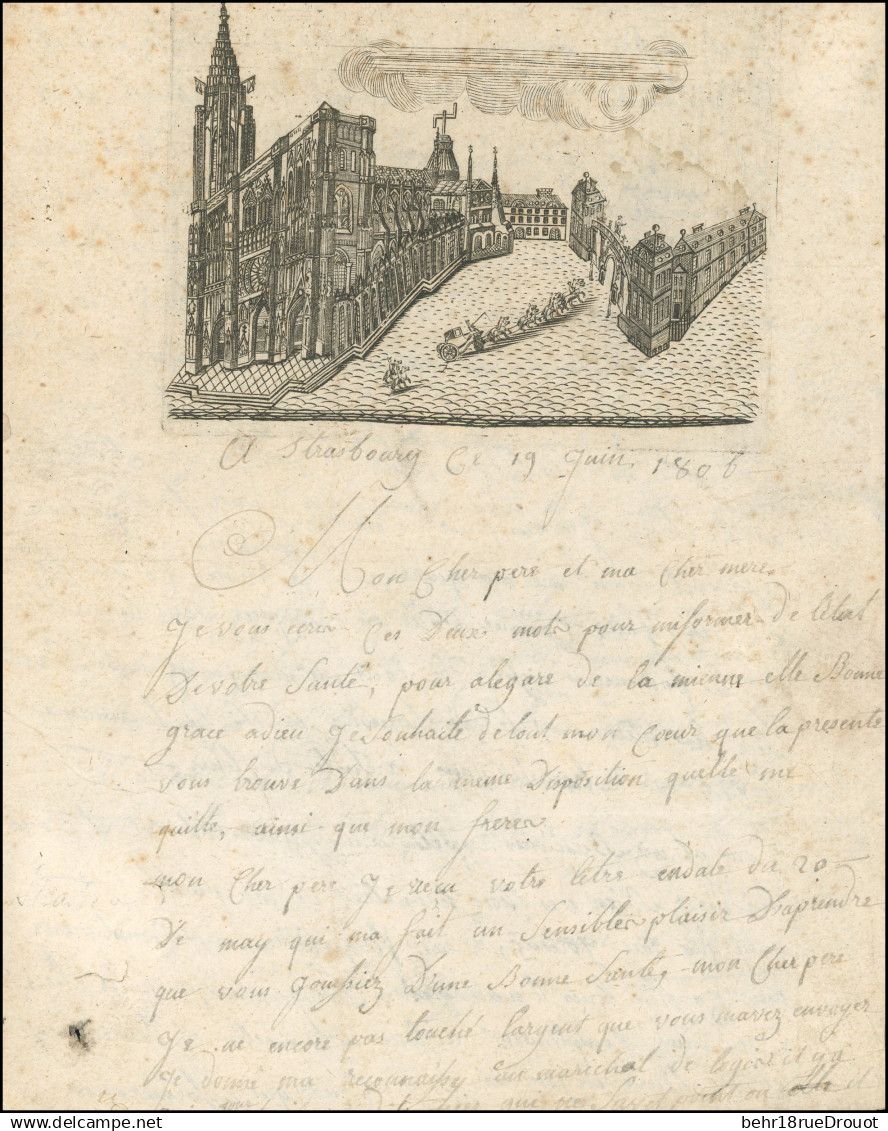 A Strasbourg Ce 19 Juin 1806
Mon Cher pere et ma Cher mere
Je vous ecris Ces Deux mots pour m'iformer De l'état
De votre Santé, pour alegare de la mienne elle Bonne
grace adieu Je Souhaite de tout mon Coeur que la presente
vous trouve Dans la meme Disposition quelle me
quitte, ainsi que mon freres
mon Cher pere Je recu votre letre endate du 20
De may qui ma fait un Sensible plaisir D'aprendre
que vous Jouissiez D'une Bonne Santé, mon Cher pere
Je ne encore pas touché l'argent que vous mavez envoyer
Je donné ma marechal de logis il ya
que ne point ou il
behr18rueDrouot